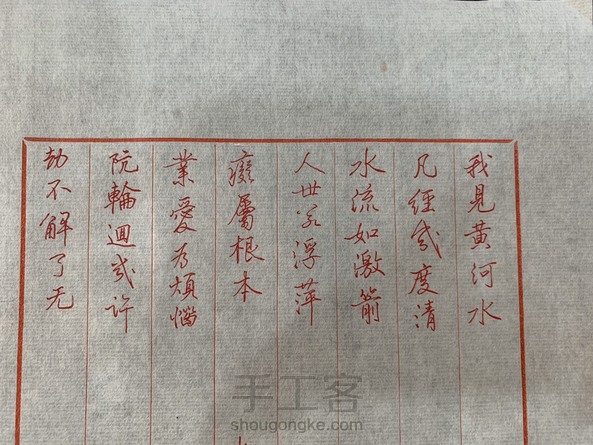 我見黃河水
凡經幾度清
水流如激箭
人世若浮萍
癡屬根本
業愛為煩惱
阬輪迴幾許
劫不解了无
手工客
shougongke.com